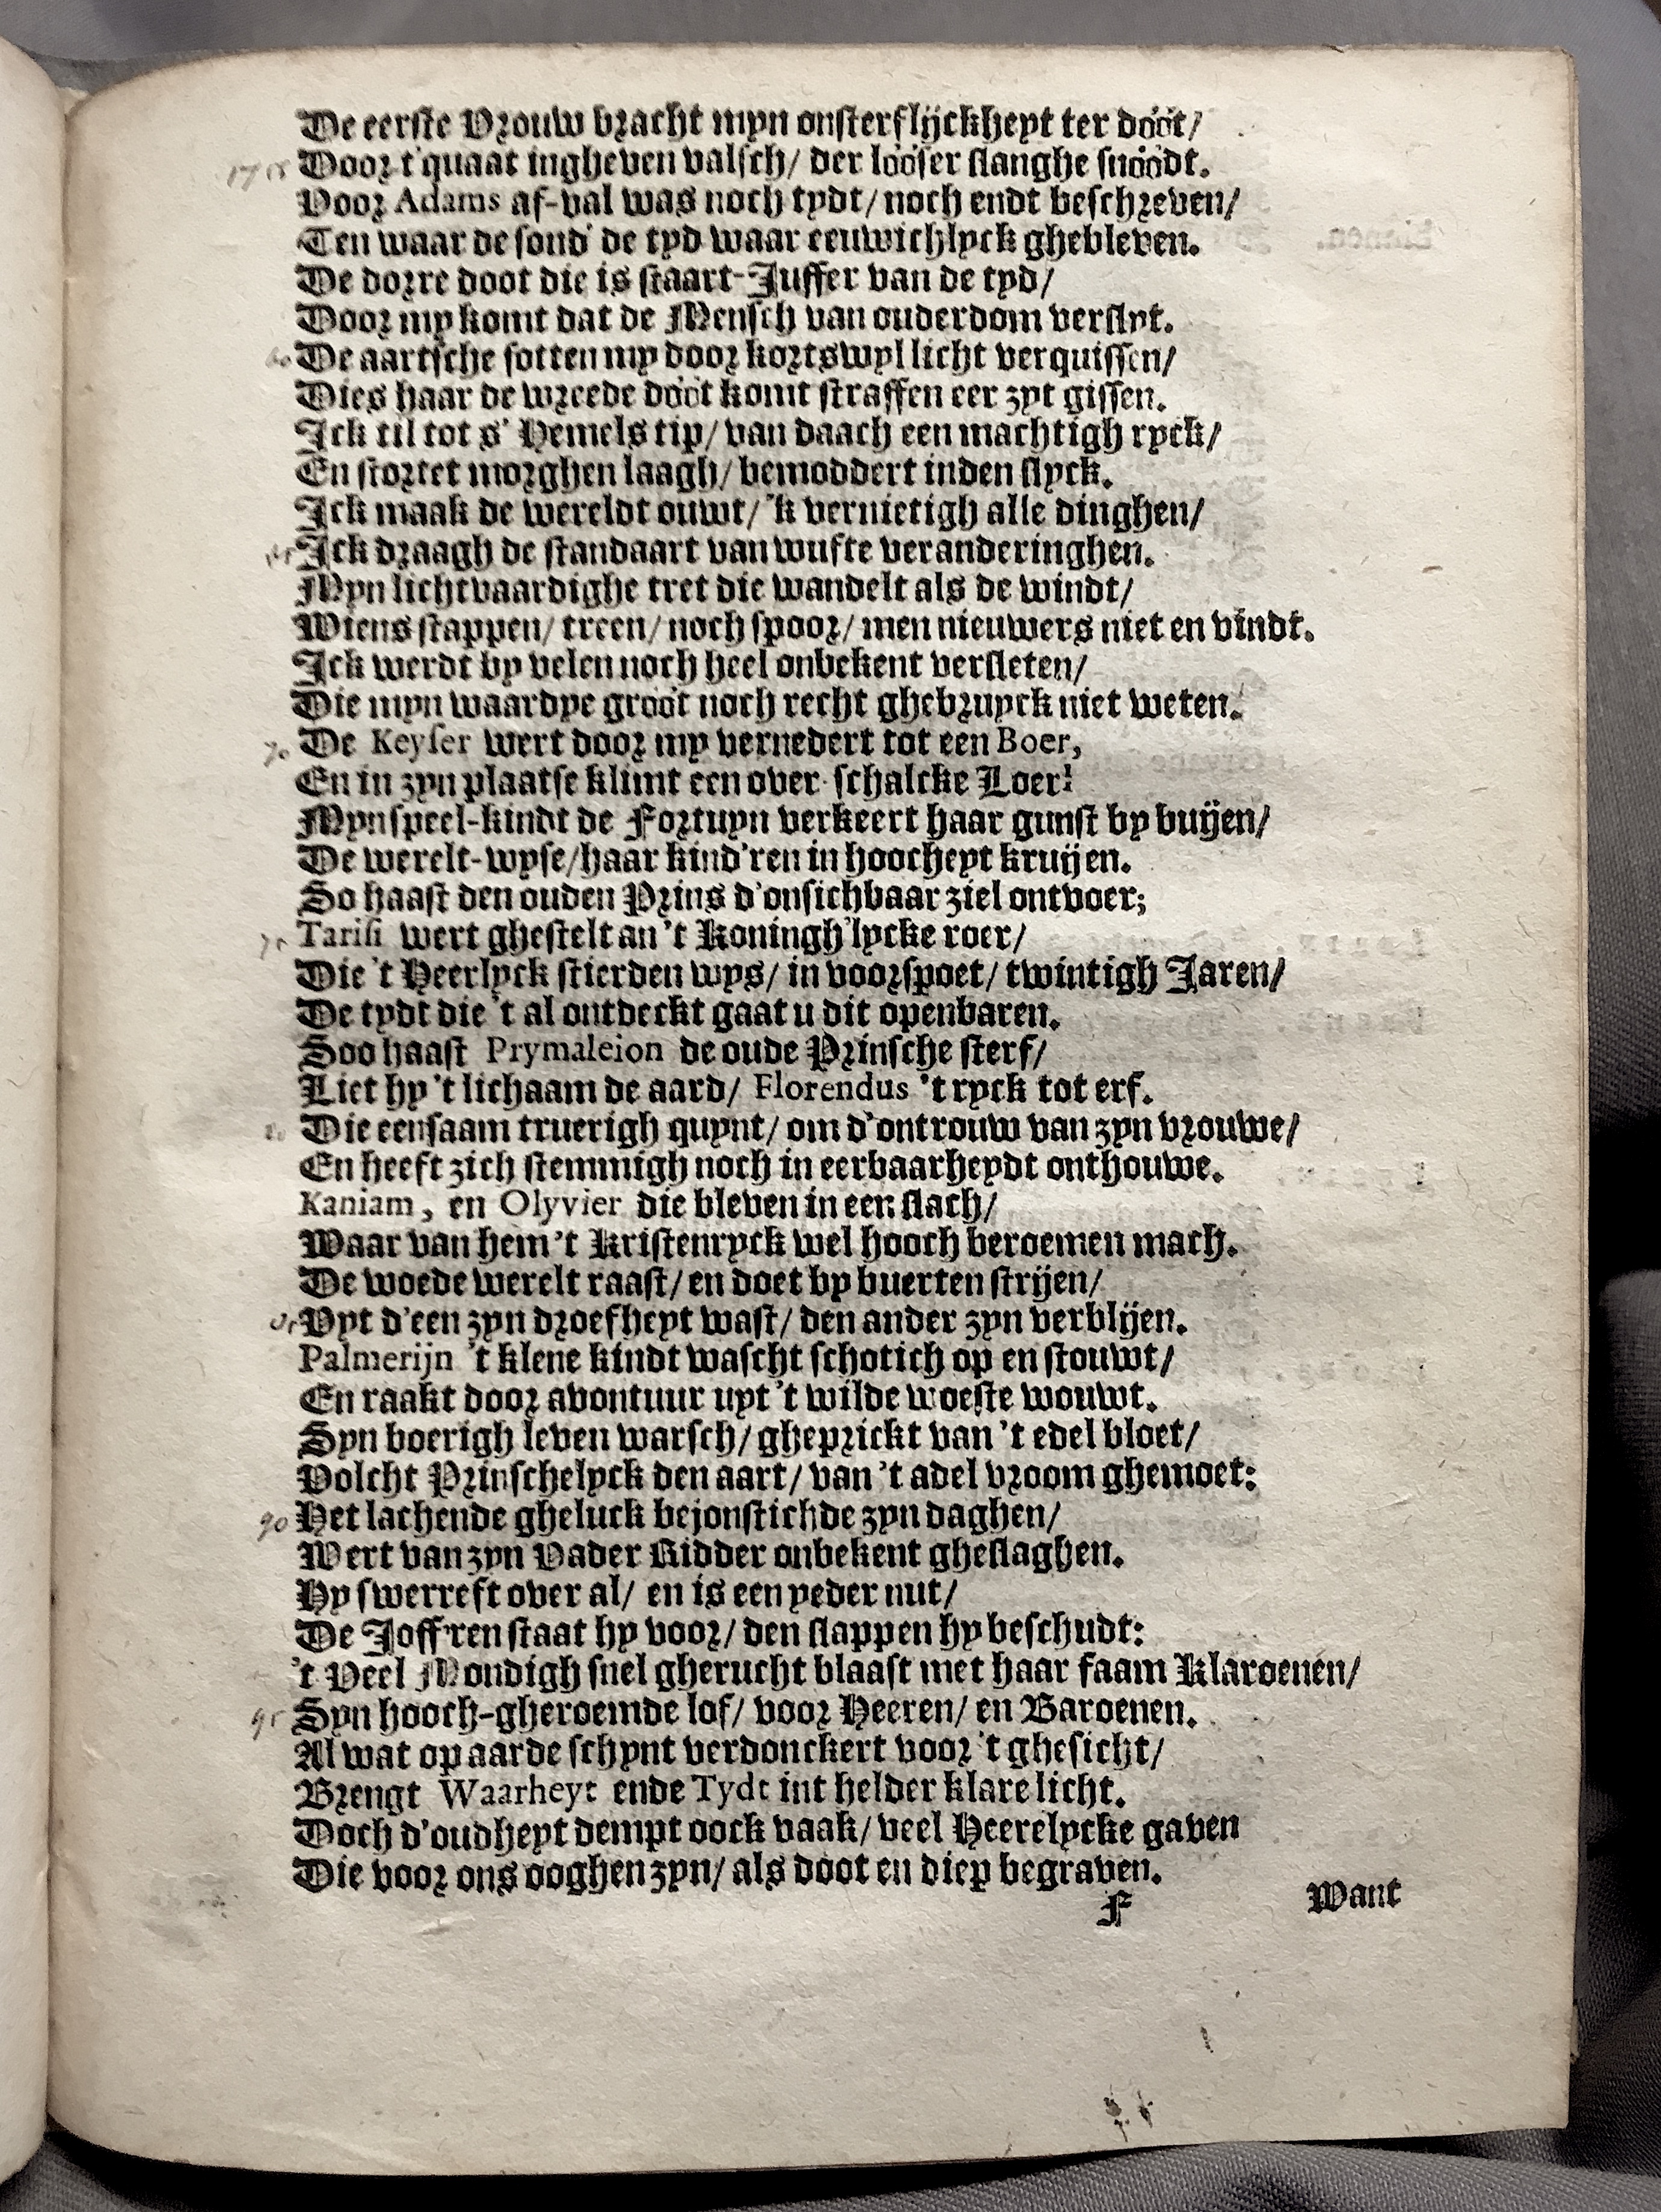 De eerste Vrouw bracht myn onsterflijckheyt ter dóót/
17 55 Door t'quaat ingheven valsch/ der lóóser slanghe snóódt.
Voor Adams af-val was noch tydt/ noch endt beschreven/
Ten waar de sond' de tyd waar eeuwichlyck ghebleven.
De dorre doot die is staart-Juffer van de tyd/
Door my komt dat de Mensch van ouderdom verslyt.
60 De aartsche sotten my door kortswyl licht verquissen/
Dies haar de wreede dóót komt straffen eer zyt gissen.
Ick til tot s' Hemels tip/ van daach een machtigh ryck/
En stortet morghen laagh/ bemoddert inden slyck.
Ick maak de wereldt ouwt/ 'k vernietigh alle dinghen/
65 Ick draagh de standaart van wufte veranderinghen.
Myn lichtvaardighe tret die wandelt als de windt/
Wiens stappen/ treen/ noch spoor/ men nieuwers niet en vindt.
Ick werdt by velen noch heel onbekent versleten/
Die myn waardye gróót noch recht ghebruyck niet weten.
70 De Keyser wert door my vernedert tot een Boer,
En in zyn plaatse klimt een over-schalcke Loer!
Myn speel-kindt de Fortuyn verkeert haar gunst by buijen/
De werelt-wyse/ haar kind'ren in hoocheyt kruijen.
So haast den ouden Prins d'onsichbaar ziel ontvoer;
75 Tarisi wert ghestelt an 't Koningh'lycke roer/
Die 't Heerlyck stierden wys/ in voorspoet/ twintigh Jaren/
De tydt die 't al ontdeckt gaat u dit openbaren.
Soo haast Prymaleion de oude Prinsche sterf/
Liet hy 't lichaam de aard/ Florendus 't ryck tot erf.
80 Die eensaam truerigh quynt/ om d'ontrouw van zyn vrouwe/
En heeft zich stemmigh noch in eerbaarheydt onthouwe.
Kaniam, en Olyvier die bleven in een slach/
Waar van hem 't Kristenryck wel hooch beroemen mach.
De woede werelt raast/ en doet by buerten strijen/
85 Uyt d'een zyn droefheyt wast/ den ander zyn verblijen.
Palmerijn 't klene kindt wascht schotich op en stouwt/
En raakt door avontuur uyt 't wilde woeste wouwt.
Syn boerigh leven warsch/ gheprickt van 't edel bloet/
Volcht Prinschelyck den aart/ van 't adel vroom ghemoet:
90 Het lachende gheluck bejonstichde zyn daghen/
Wert van zyn Vader Ridder onbekent gheslaghen.
Hy swerreft over al/ en is een yeder nut/
De Joff'ren staat hy voor/ den slappen hy beschudt:
't Veel Mondigh snel gherucht blaast met haar faam Klaroenen/
95 Syn hooch-gheroemde lof/ voor Heeren/ en Baroenen.
Al wat op aarde schynt verdonckert voor 't ghesicht/
Brengt Waarheyt ende Tydt int helder klare licht.
Doch d'oudheyt dempt oock vaak/ veel Heerelycke gaven
Die voor ons ooghen zyn/ als doot en diep begraven.
F Want